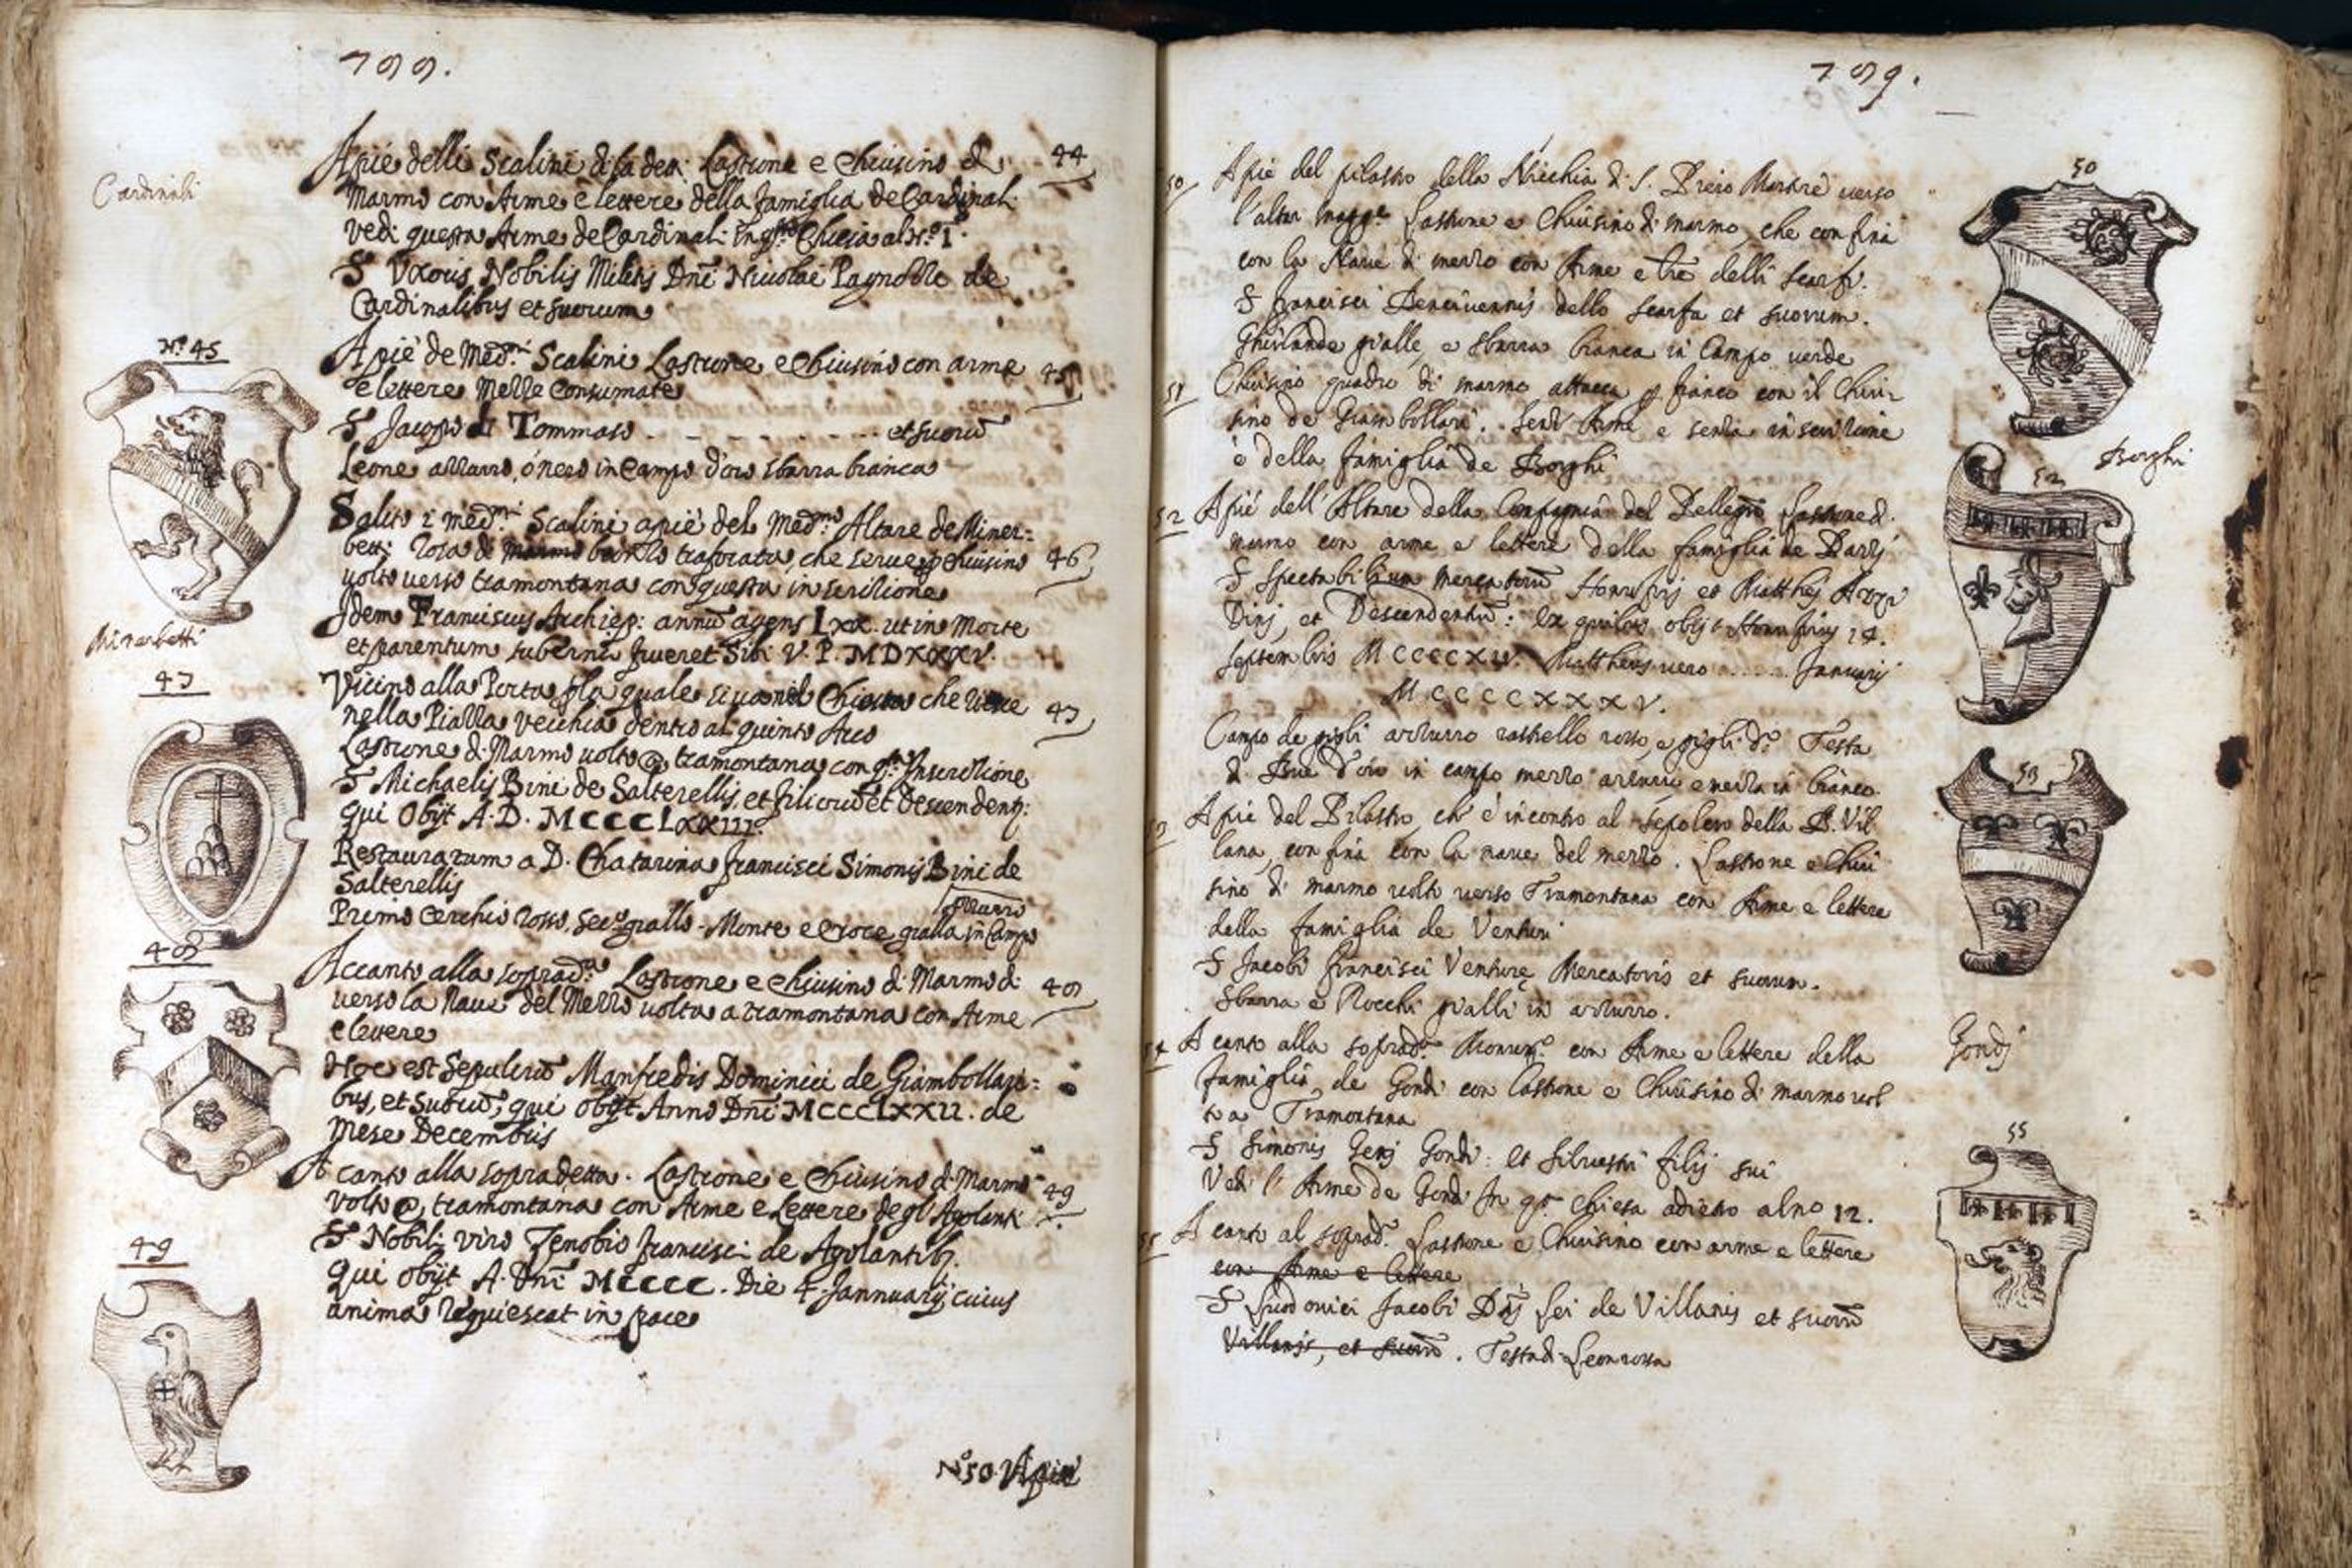 Cardinali
Apié delli Scalini di la dea: Lastrone e Chiusino di 44
Marmo con Arme e lettere della famiglia de Cardinali
vedi questa Arme de Cardinali in Chiesa al N.º 1.
S Uxoris Nobilis Militis Dni Nicolai Pagnozzi de
Cardinalibus et suorum
N.º 45
Apié de Med.mi Scalini Lastrone e Chiusino con arme 45
e lettere Mezze consumate
S Jacopo di Tommaso . - - - . . . . . . et suorū
Leone azzurro, ó nero in Campo d'oro sbarra bianca
Salito i med.mi Scalini apié del Med.mo Altare de Miner=
betti Rosa di bronzo traforata, che serve p Chiusino 46
volto verso tramontana con questa inscrizione
Minerbetti
Idem Franciscus Archiep: annū agens Lxx. ut in Morte
et parentum iaceret Sibi V. P. MDXXXV.
47
Vicino alla Porta p la quale si va nel Chiostro che viene
nella Piazza vecchia dentro al quinto Arco 47
Lastrone di Marmo volto @ tramontana con Inscrizione
S Michaelis Bini de Salterellis, et filiorū et Descendentī:
qui Obijt A. D. MCCCLXXIII.
Restauratum a D. Chatarina Francisci Simonis Bini de
Salterellis
Primo Cerchio Rosso, Sec.º giallo - Monte e Croce gialla in Campo
azzurro
48
Accanto alla soprad.ta Lastrone e Chiusino di Marmo di 48
verso la Nave del Mezzo volto a tramontana con Arme
e lettere
Hoc est Sepulcrū Manfredis Dominici de Giambollari=
bus, et Suorū, qui obijt Anno Dni MCCCLXXII. de
Mese Decembris
Acanto alla sopradetta. Lastrone e Chiusino di Marmo 49
Volto @ tramontana con Arme e Lettere degl'Agolanti
49
S Nobili viro Zenobio Francisci de Agolantib.
Qui obijt A. Dni MCCCC. Die 4 Jannuarij cuius
anima Requiescat in pace
N.º 50. Apié
799.
50 Apié del pilastro della Nicchia di S. Piero Martire verso
l'altar magg.e Lastrone e Chiusino di marmo, che confina
con la Nave di mezzo con Arme e lre delli Scarfi.
S Francisci Bencivennis dello Scarfa et suorum.
Ghirlande gialle, e sbarra bianca in Campo verde
50
51 Chiusino quadro di marmo attacca p fianco con il Chiu-
sino de Giambollari. Senz' Arme e senza inscrizione
è della famiglia de Borghi
Borghi
52 Apié dell'Altare della Compagnia del Pellegrō Lastrone di
marmo con arme e lettere della famiglia de Parzi
52
S Spectabilium Mercatorū Honufrij et Matthej
et Descendentiū: Ex quibus obijt Honufrius 14.
Septembris MCCCCXV. Mattheus vero ...... Januarij
MCCCCXXXV.
Campo de gigli azzurro rastrello rosso, e gigli d.º Testa
di Bue d'oro in campo mezzo azzurro e mezzo in bianco.
53 Apié del Pilastro, ch' è incontro al Sepolcro della B. Vil
lana, confina con la nave del mezzo. Lastrone e Chiu
sino di marmo volti verso Tramontana con Arme e lettere
della famiglia de Venturi
53
S Jacobi Francisci Venture Mercatoris et suorum.
Sbarra e Rocchi gialli in azzurro.
54 Acanto alla soprad.ª Monum.º con Arme e lettere della
famiglia de Gondi con Lastrone e Chiusino di marmo vol
to a Tramontana
Gondj
S Simonis Gerij Gondi: et Silvestri filij sui
Vedi l'Arme de Gondi In q.ª Chiesa adietro al no 12.
55
55 Acanto al soprad.º Lastrone e Chiusino con arme e lettere
con Arme e lettere
S Ludovici Jacobi Dnj Lei de Villanis et suorū
Villanis, et suorū. Testa di Leon rossa